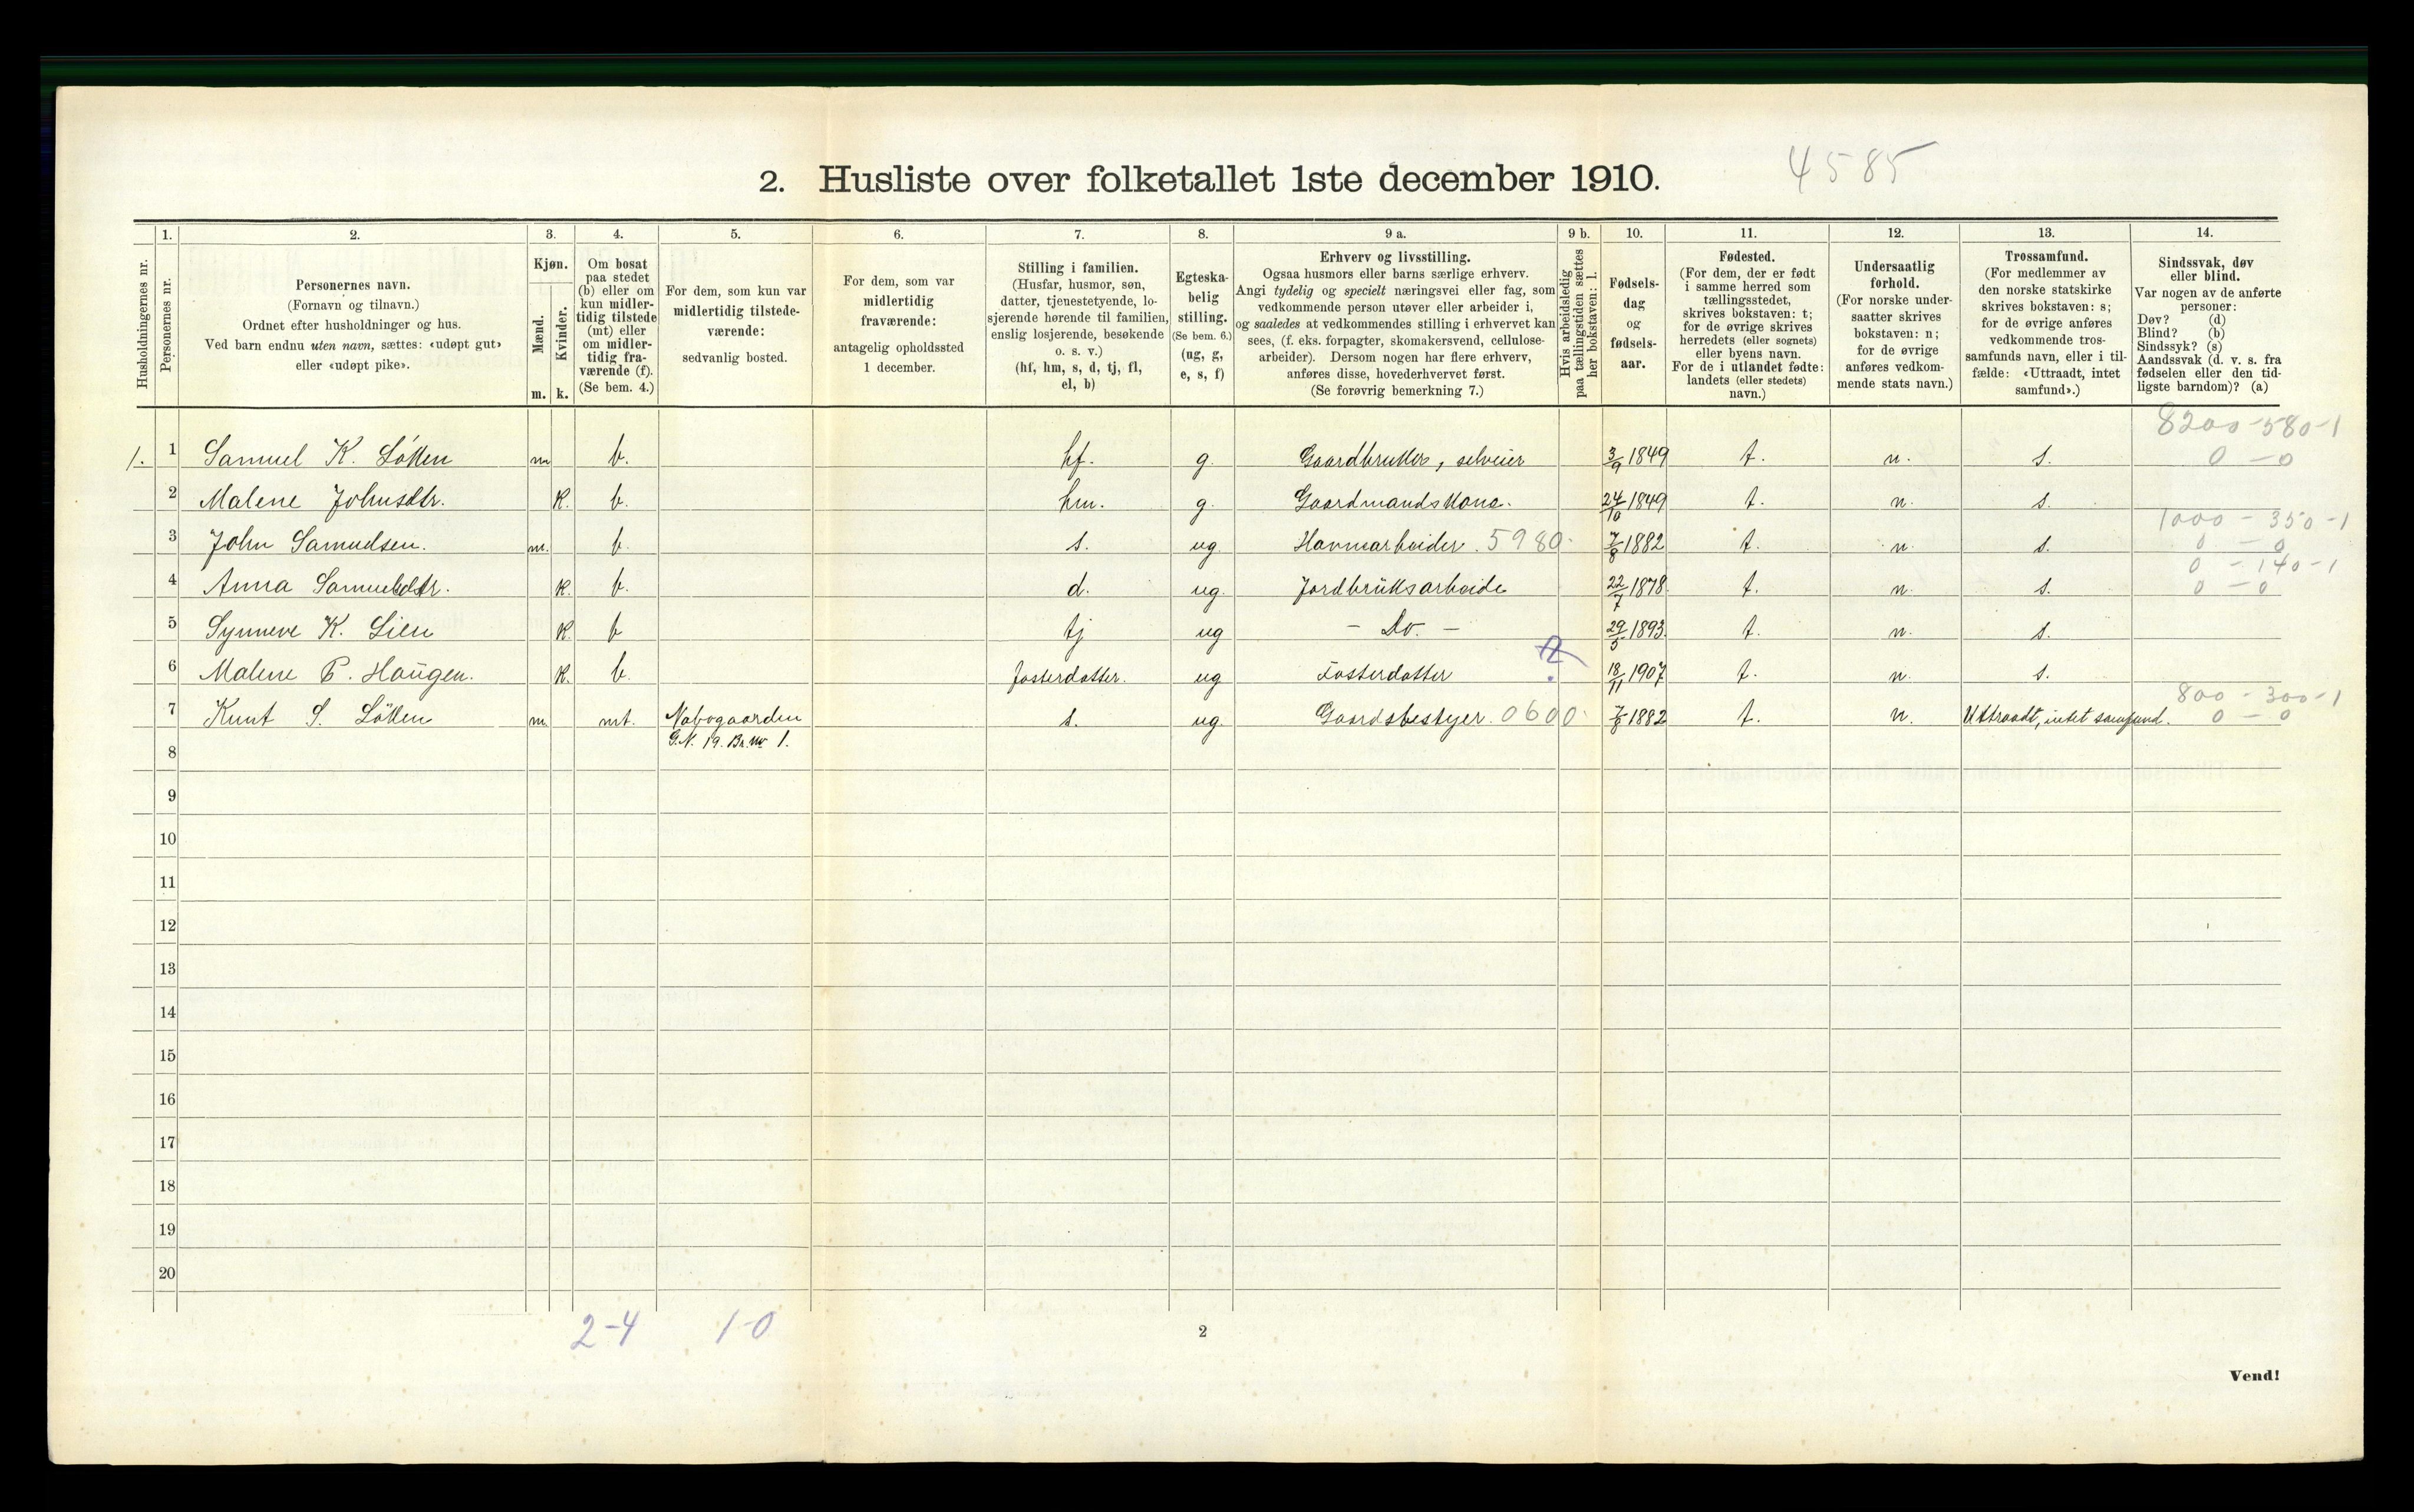 2. Husliste over folketallet 1ste december 1910. 4585
Husholdningernes nr.
1.
Personernes nr.
2.
Personernes navn.
(Fornavn og tilnavn.)
Ordnet efter husholdninger og hus.
Ved barn endnu uten navn, sættes: «udøpt gut»
eller «udøpt pike».
3.
Kjøn.
Mænd.
Kvinder.
m. k.
4.
Om bosat
paa stedet
(b) eller om
kun midler-
tidig tilstede
(mt) eller
om midler-
tidig fra-
værende (f).
(Se bem. 4.)
5.
For dem, som kun var
midlertidig tilstede-
værende:
sedvanlig bosted.
6.
For dem, som var
midlertidig
fraværende:
antagelig opholdssted
1 december.
7.
Stilling i familien.
(Husfar, husmor, søn,
datter, tjenestetyende, lo-
sjerende hørende til familien,
enslig losjerende, besøkende
o. s. v.)
(hf, hm, s, d, tj, fl,
el, b)
8.
Egteska-
belig
stilling.
(Se bem. 6.)
(ug, g,
e, s, f)
9 a.
Erhverv og livsstilling.
Ogsaa husmors eller barns særlige erhverv.
Angi tydelig og specielt næringsvei eller fag, som
vedkommende person utøver eller arbeider i,
og saaledes at vedkommendes stilling i erhvervet kan
sees, (f. eks. forpagter, skomakersvend, cellulose-
arbeider). Dersom nogen har flere erhverv,
anføres disse, hovederhvervet først.
(Se forøvrig bemerkning 7.)
9 b.
Hvis arbeidsledig
paa tællingstiden sættes
her bokstaven: l.
10.
Fødsels-
dag
og
fødsels-
aar.
11.
Fødested.
(For dem, der er født
i samme herred som
tællingsstedet,
skrives bokstaven: t;
for de øvrige skrives
herredets (eller sognets)
eller byens navn.
For de i utlandet fødte:
landets (eller stedets)
navn.)
12.
Undersaatlig
forhold.
(For norske under-
saatter skrives
bokstaven: n;
for de øvrige
anføres vedkom-
mende stats navn.)
13.
Trossamfund.
(For medlemmer av
den norske statskirke
skrives bokstaven: s;
for de øvrige anføres
vedkommende tros-
samfunds navn, eller i til-
fælde: «Uttraadt, intet
samfund».)
14.
Sindssvak, døv
eller blind.
Var nogen av de anførte
personer:
Døv? (d)
Blind? (b)
Sindssyk? (s)
Aandssvak (d. v. s. fra
fødselen eller den tid-
ligste barndom)? (a)
8200-580-1
1. 1 Samuel K. Løkken m b. hf. g. Gaardbruker, selveier 3/9 1849 t. n. s. 0-0
2 Malene Johnsdtr. k. b. hm. g. Gaardmandskona. 24/10 1849 t. n. s.
1000-350-1
3 John Samuelsen. m. b. s. ug. Havnearbeider. 5980. 7/8 1882 t. n. s. 0-0
0-140-1
4 Anna Samuelsdtr. k. b. d. ug. Jordbruksarbeide 22/7 1878. t. n. s. 0-0
5 Synneve K. Lien k. b tj ug - Do. - 29/5 1893. t. n. s.
6 Malene P. Haugen. k. b. fosterdatter. ug Fosterdatter ? 18/11 1907 t. n. s.
800-300-1
7 Knut S. Løkken m. mt. Nabogaarden s. ug. Gaardsbestyer. 0600. 7/8 1882 t. n. Uttraadt, intet samfund. 0-0
G.N. 19. Br. nr 1.
8
9
10
11
12
13
14
15
16
17
18
19
20
2-4 1-0
2
Vend!